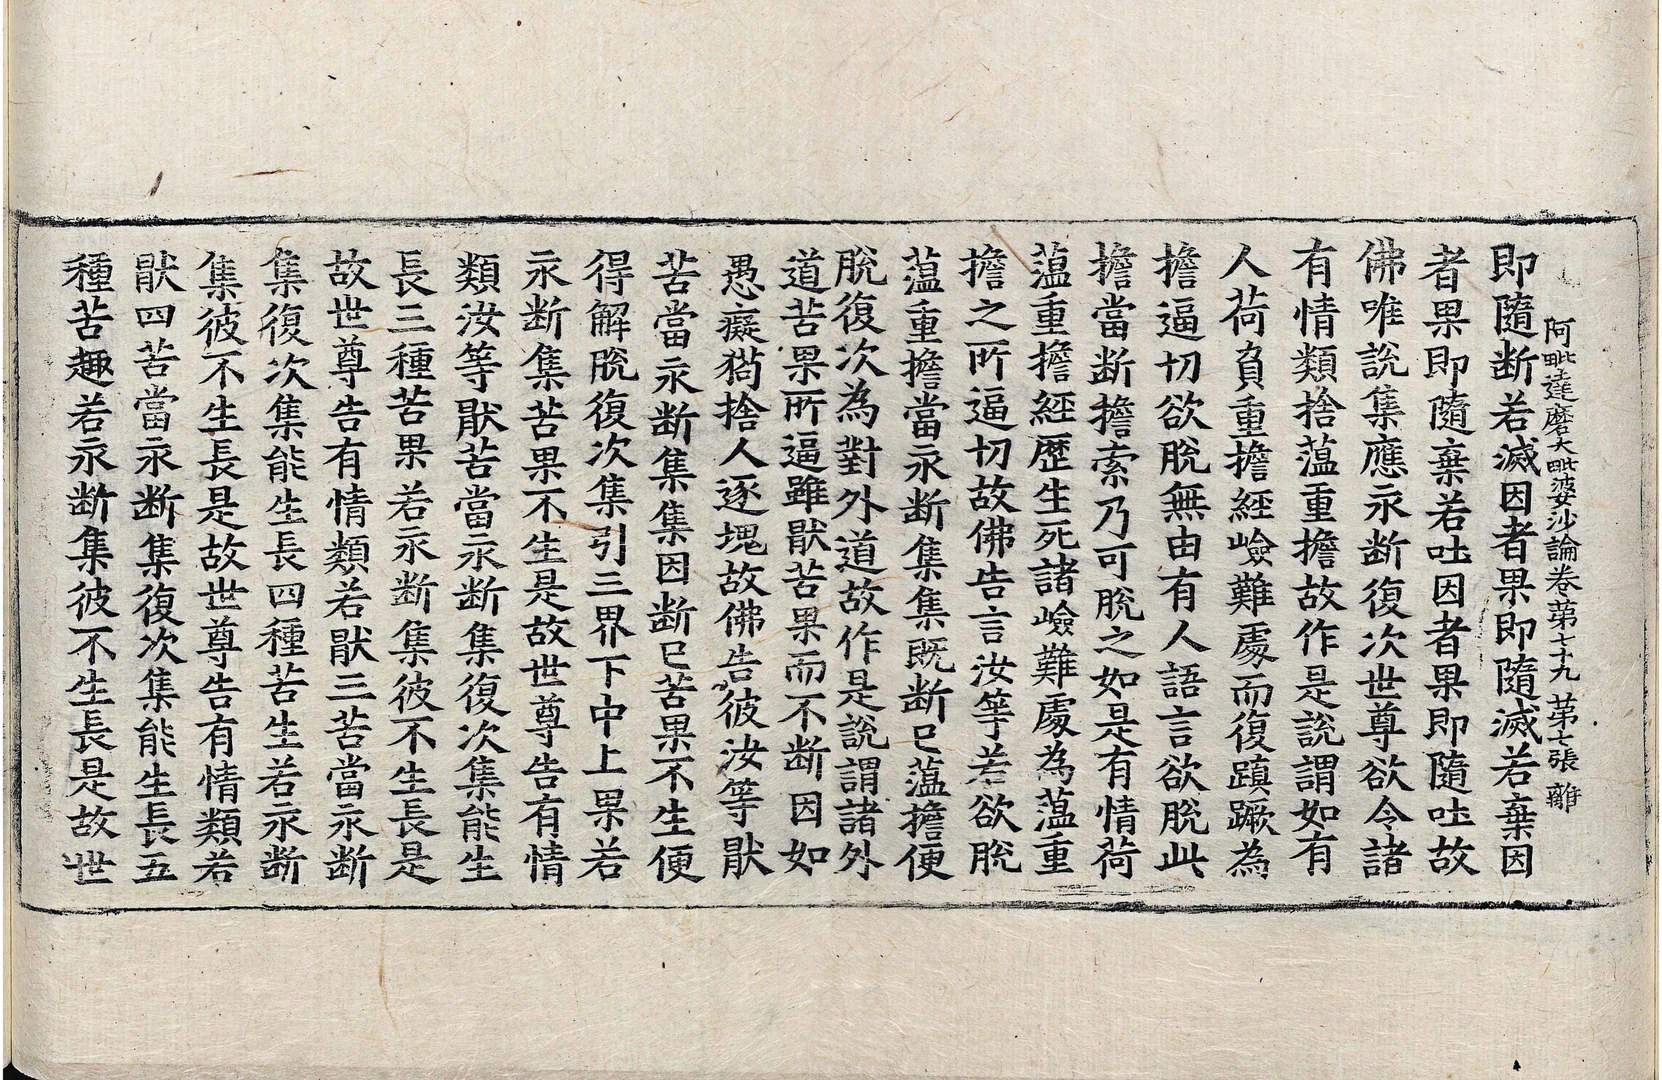 阿毗達磨大毗婆沙論卷苐七十九 苐七張 離
即隨断若滅因者果即隨滅若棄因
者果即隨棄若吐因者果即隨吐故
佛唯說集應永断復次世尊欲令諸
有情類捨蕰重擔故作是說謂如有
人荷負重擔經嶮難處而復蹎蹶為
擔逼切欲脫無由有人語言欲脫此
擔當断擔索乃可脫之如是有情荷
蕰重擔經歷生死諸嶮難處為蕰重
擔之所逼切故佛告言汝等若欲脫
蕰重擔當永断集集既断已蕰擔便
脫復次為對外道故作是說謂諸外
道苦果所逼雖猒苦果而不断因如
愚癡猫捨人逐塊故佛告彼汝等猒
苦當永断集集因断已苦果不生便
得解脫復次集引三界下中上果若
永断集苦果不生是故世尊告有情
類汝等猒苦當永断集復次集能生
長三種苦果若永断集彼不生長是
故世尊告有情類若猒三苦當永断
集復次集能生長四種苦生若永断
集彼不生長是故世尊告有情類若
猒四苦當永断集復次集能生長五
種苦趣若永断集彼不生長是故世